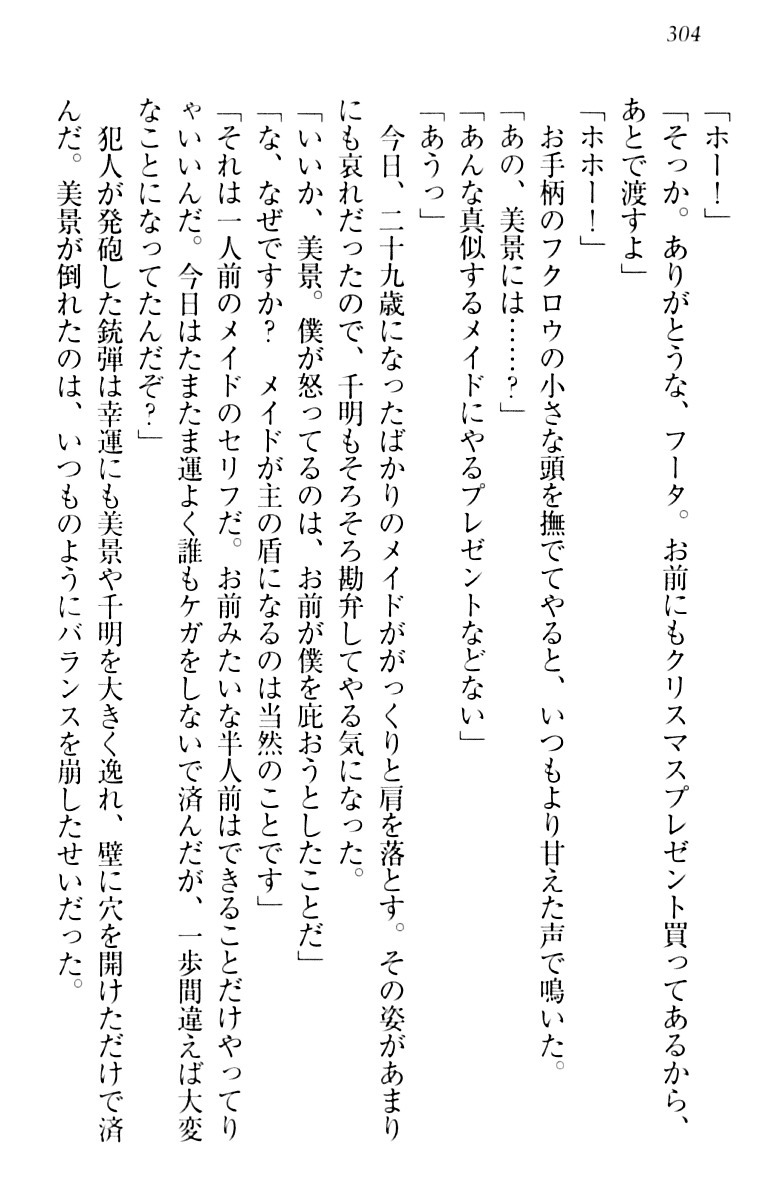 304
「ホー！」
「そっか。ありがとうな、フータ。お前にもクリスマスプレゼント買ってあるから、
あとで渡すよ」
「ホホー！」
お手柄のフクロウの小さな頭を撫でてやると、いつもより甘えた声で鳴いた。
「あの、美景には……？」
「あんな真似するメイドにやるプレゼントなどない」
「あうっ」
今日、二十九歳になったばかりのメイドががっくりと肩を落とす。その姿があまり
にも哀れだったので、千明もそろそろ勘弁してやる気になった。
「いいか、美景。僕が怒ってるのは、お前が僕を庇おうとしたことだ」
「な、なぜですか？　メイドが主の盾になるのは当然のことです」
「それは一人前のメイドのセリフだ。お前みたいな半人前はできることだけやってり
ゃいいんだ。今日はたまたま運よく誰もケガをしないで済んだが、一歩間違えば大変
なことになってたんだぞ？」
犯人が発砲した銃弾は幸運にも美景や千明を大きく逸れ、壁に穴を開けただけで済
んだ。美景が倒れたのは、いつものようにバランスを崩したせいだった。